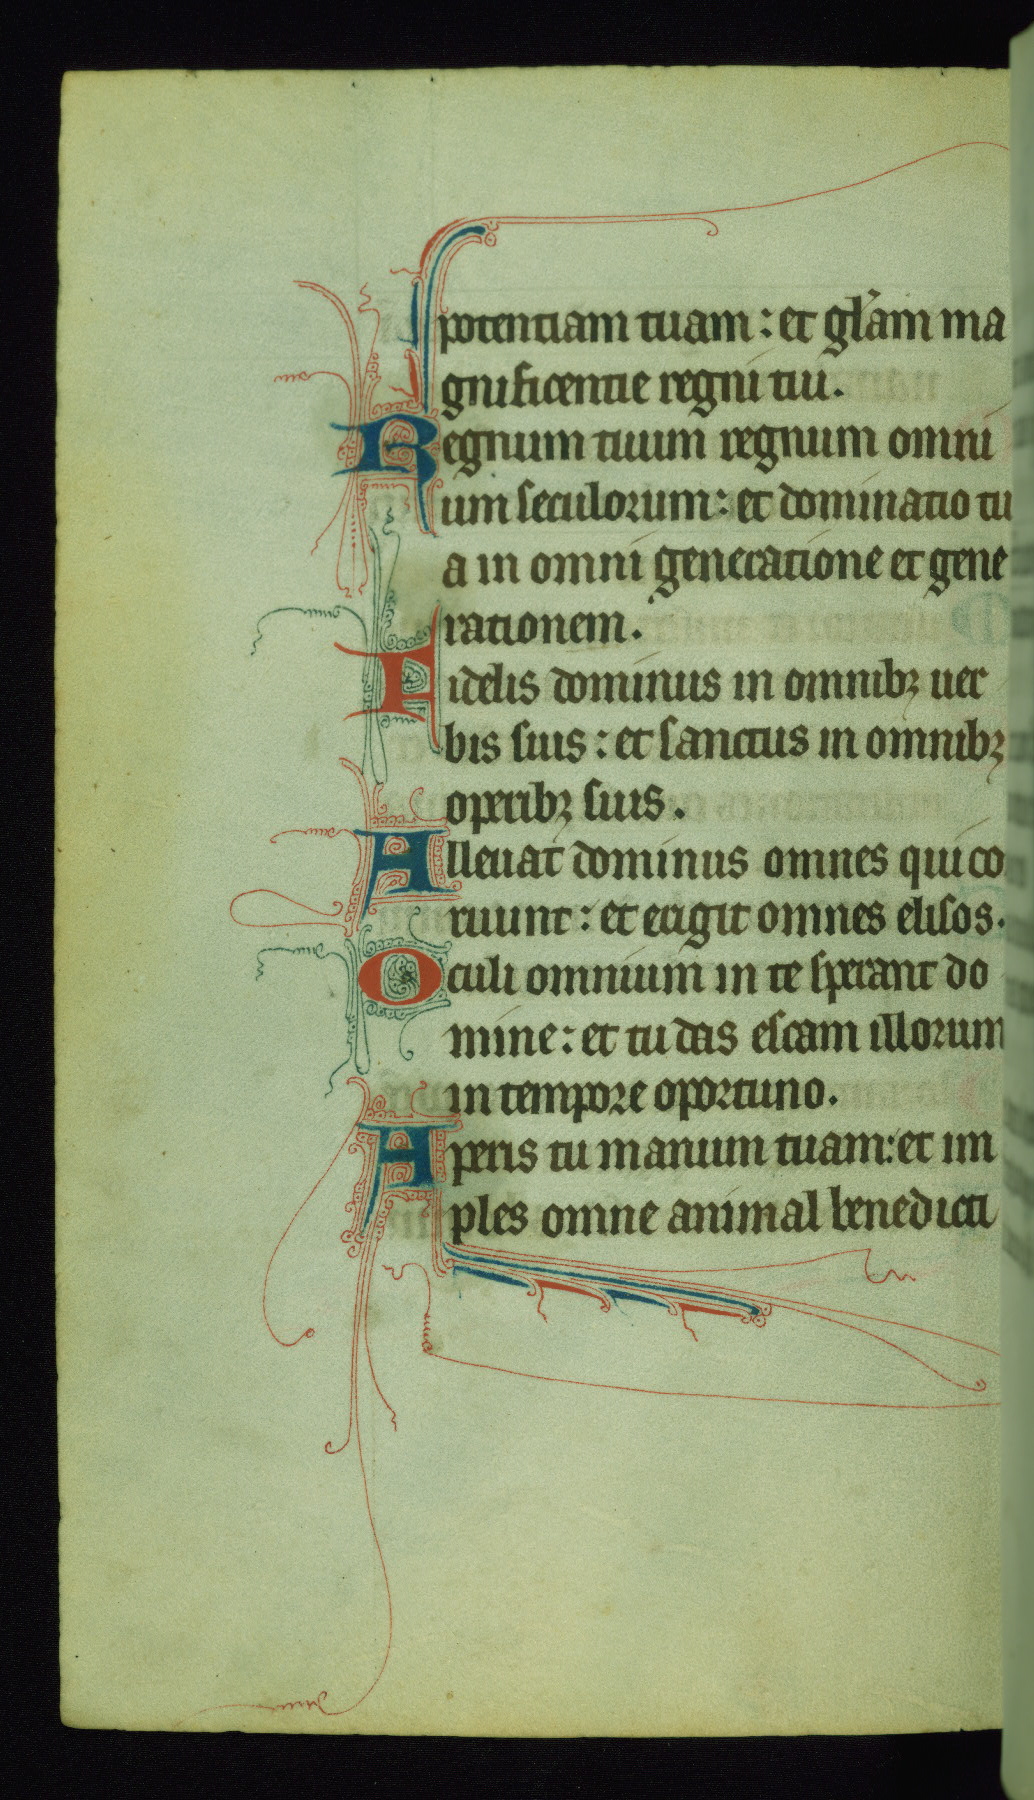 potentiam tuam : et gl'am ma
gnificentie regni tui.
Regnum tuum regnum omni
um seculorum : et dominatio tu
a in omni generatione et gene
rationem.
Fidelis dominus in omnibꝫ uer
bis suis : et sanctus in omnibꝫ
operibꝫ suis.
Alleuat dominus omnes qui co
ruunt : et erigit omnes elisos.
Oculi omnium in te sperant do
mine : et tu das escam illorum
in tempore oportuno.
Aperis tu manum tuam : et im
ples omne animal benedicti